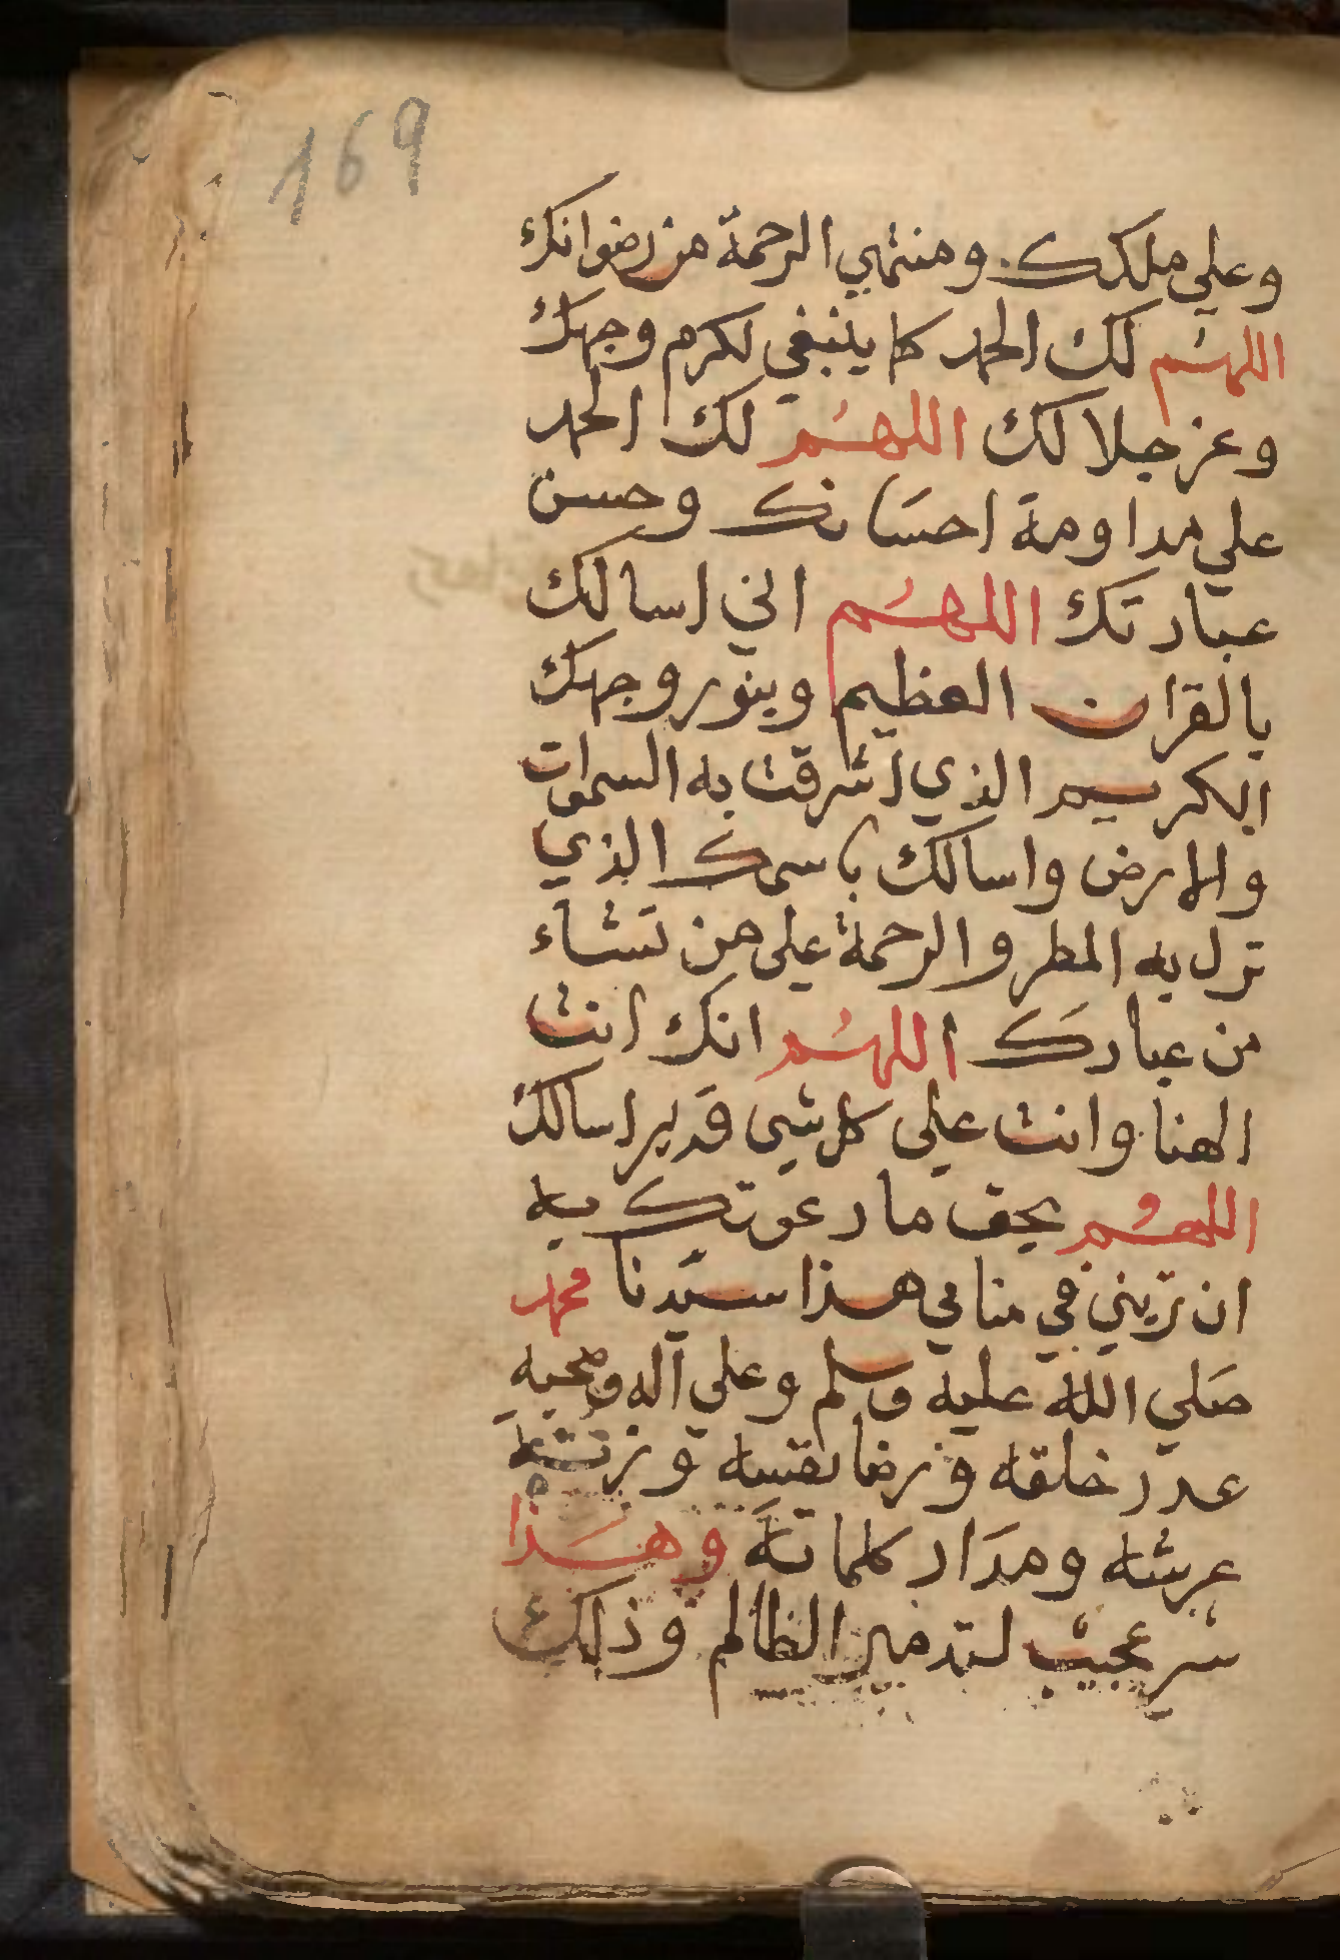 169
وعلي ملكك. ومنتهي الرحمة من رضوانك
اللهم لك الحمد كما ينبغي لكرم وجهك
وعز جلالك اللهُم لك الحمد
علي مداومة احسَانك وحسن
عبادتك اللهُم اني اسالك
بالقران العظيم وبنور وجهك
الكريم الذي اشرقت به السموات
والارض واسالك باسمك الذي
تزل به المطر والرحمة علي من تشاء
من عبادك اللهُم انك انت
الهنا وانت علي كل شي قدير اسالك
اللهُم بحق ما دعوتك به
ان تريني في منامي هذا سيدنا محمد
صَلي الله عليه وسلم وعلي آله وصحبه
عدد خلقه ورضا نفسه وزنة
عرشه ومدَاد كلماته وهَذا
سر عجيب لتدمير الظالم وذلك